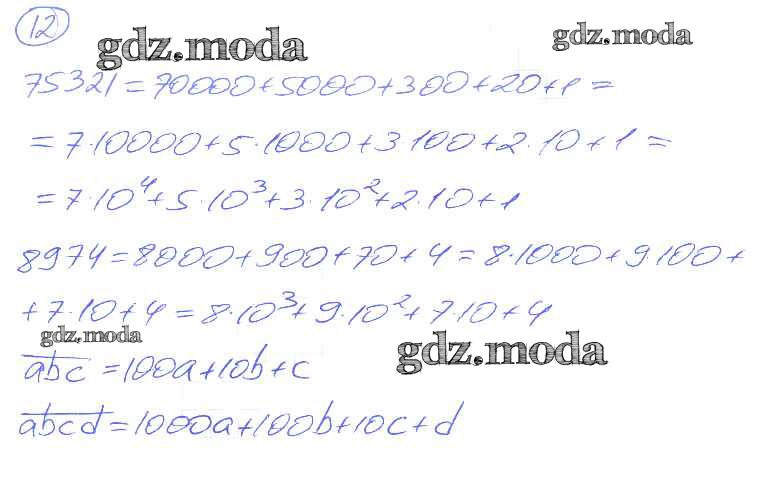 12
gdz.moda
gdz.moda
75321=70000+5000+300+20+1=
=7·10000+5·1000+3 100+2·10+1=
=7·10⁴+5·10³+3·10²+2·10+1
8974=8000+900+70+4=8·1000+9·100+
+7·10+4=8·10³+9·10²+7·10+4
gdz.moda
gdz.moda
a̅b̅c̅=100a+10b+c
a̅b̅c̅d̅=1000a+100b+10c+d